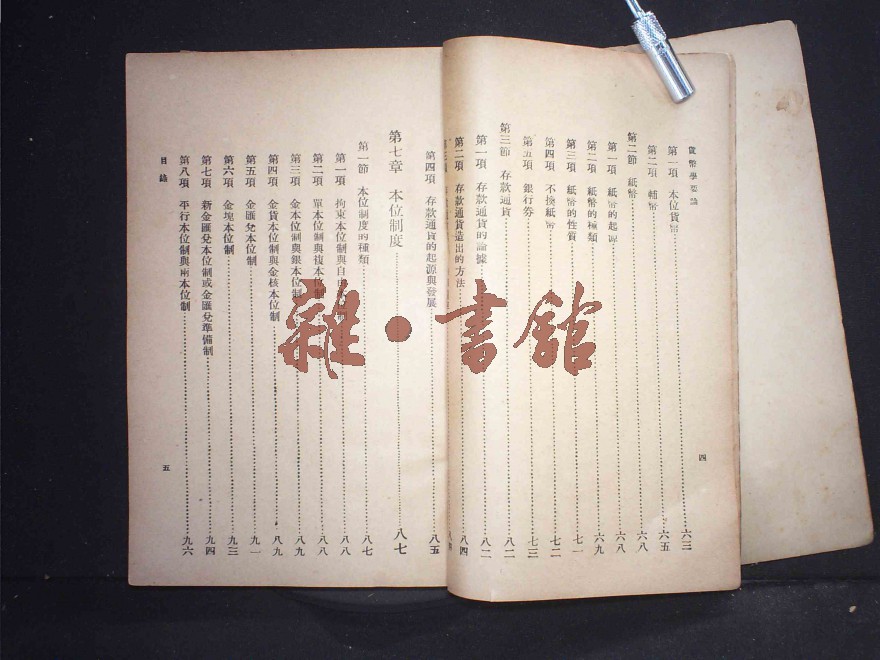 貨幣學要論
第一項 本位貨幣 六三
第二項 輔幣 六五
第二節 紙幣 六八
第一項 紙幣的起源 六八
第二項 紙幣的種類 六九
第三項 紙幣的性質 七一
第四項 不換紙幣 七二
第五項 銀行券 七三
第三節 存款通貨 八二
第一項 存款通貨的論據 八二
第二項 存款通貨造出的方法 八四
四
第四項 存款通貨的起源與發展 八五
第七章 本位制度 八七
第一節 本位制度的種類 八七
第一項 拘束本位制與自由本位制 八八
第二項 單本位制與複本位制 八八
第三項 金本位制與銀本位制 八九
第四項 金貨本位制與金核本位制 八九
第五項 金匯兌本位制 九一
第六項 金塊本位制 九三
第七項 新金匯兌本位制或金匯兌準備制 九四
第八項 平行本位制與兩本位制 九六
目錄
五
雜·書館